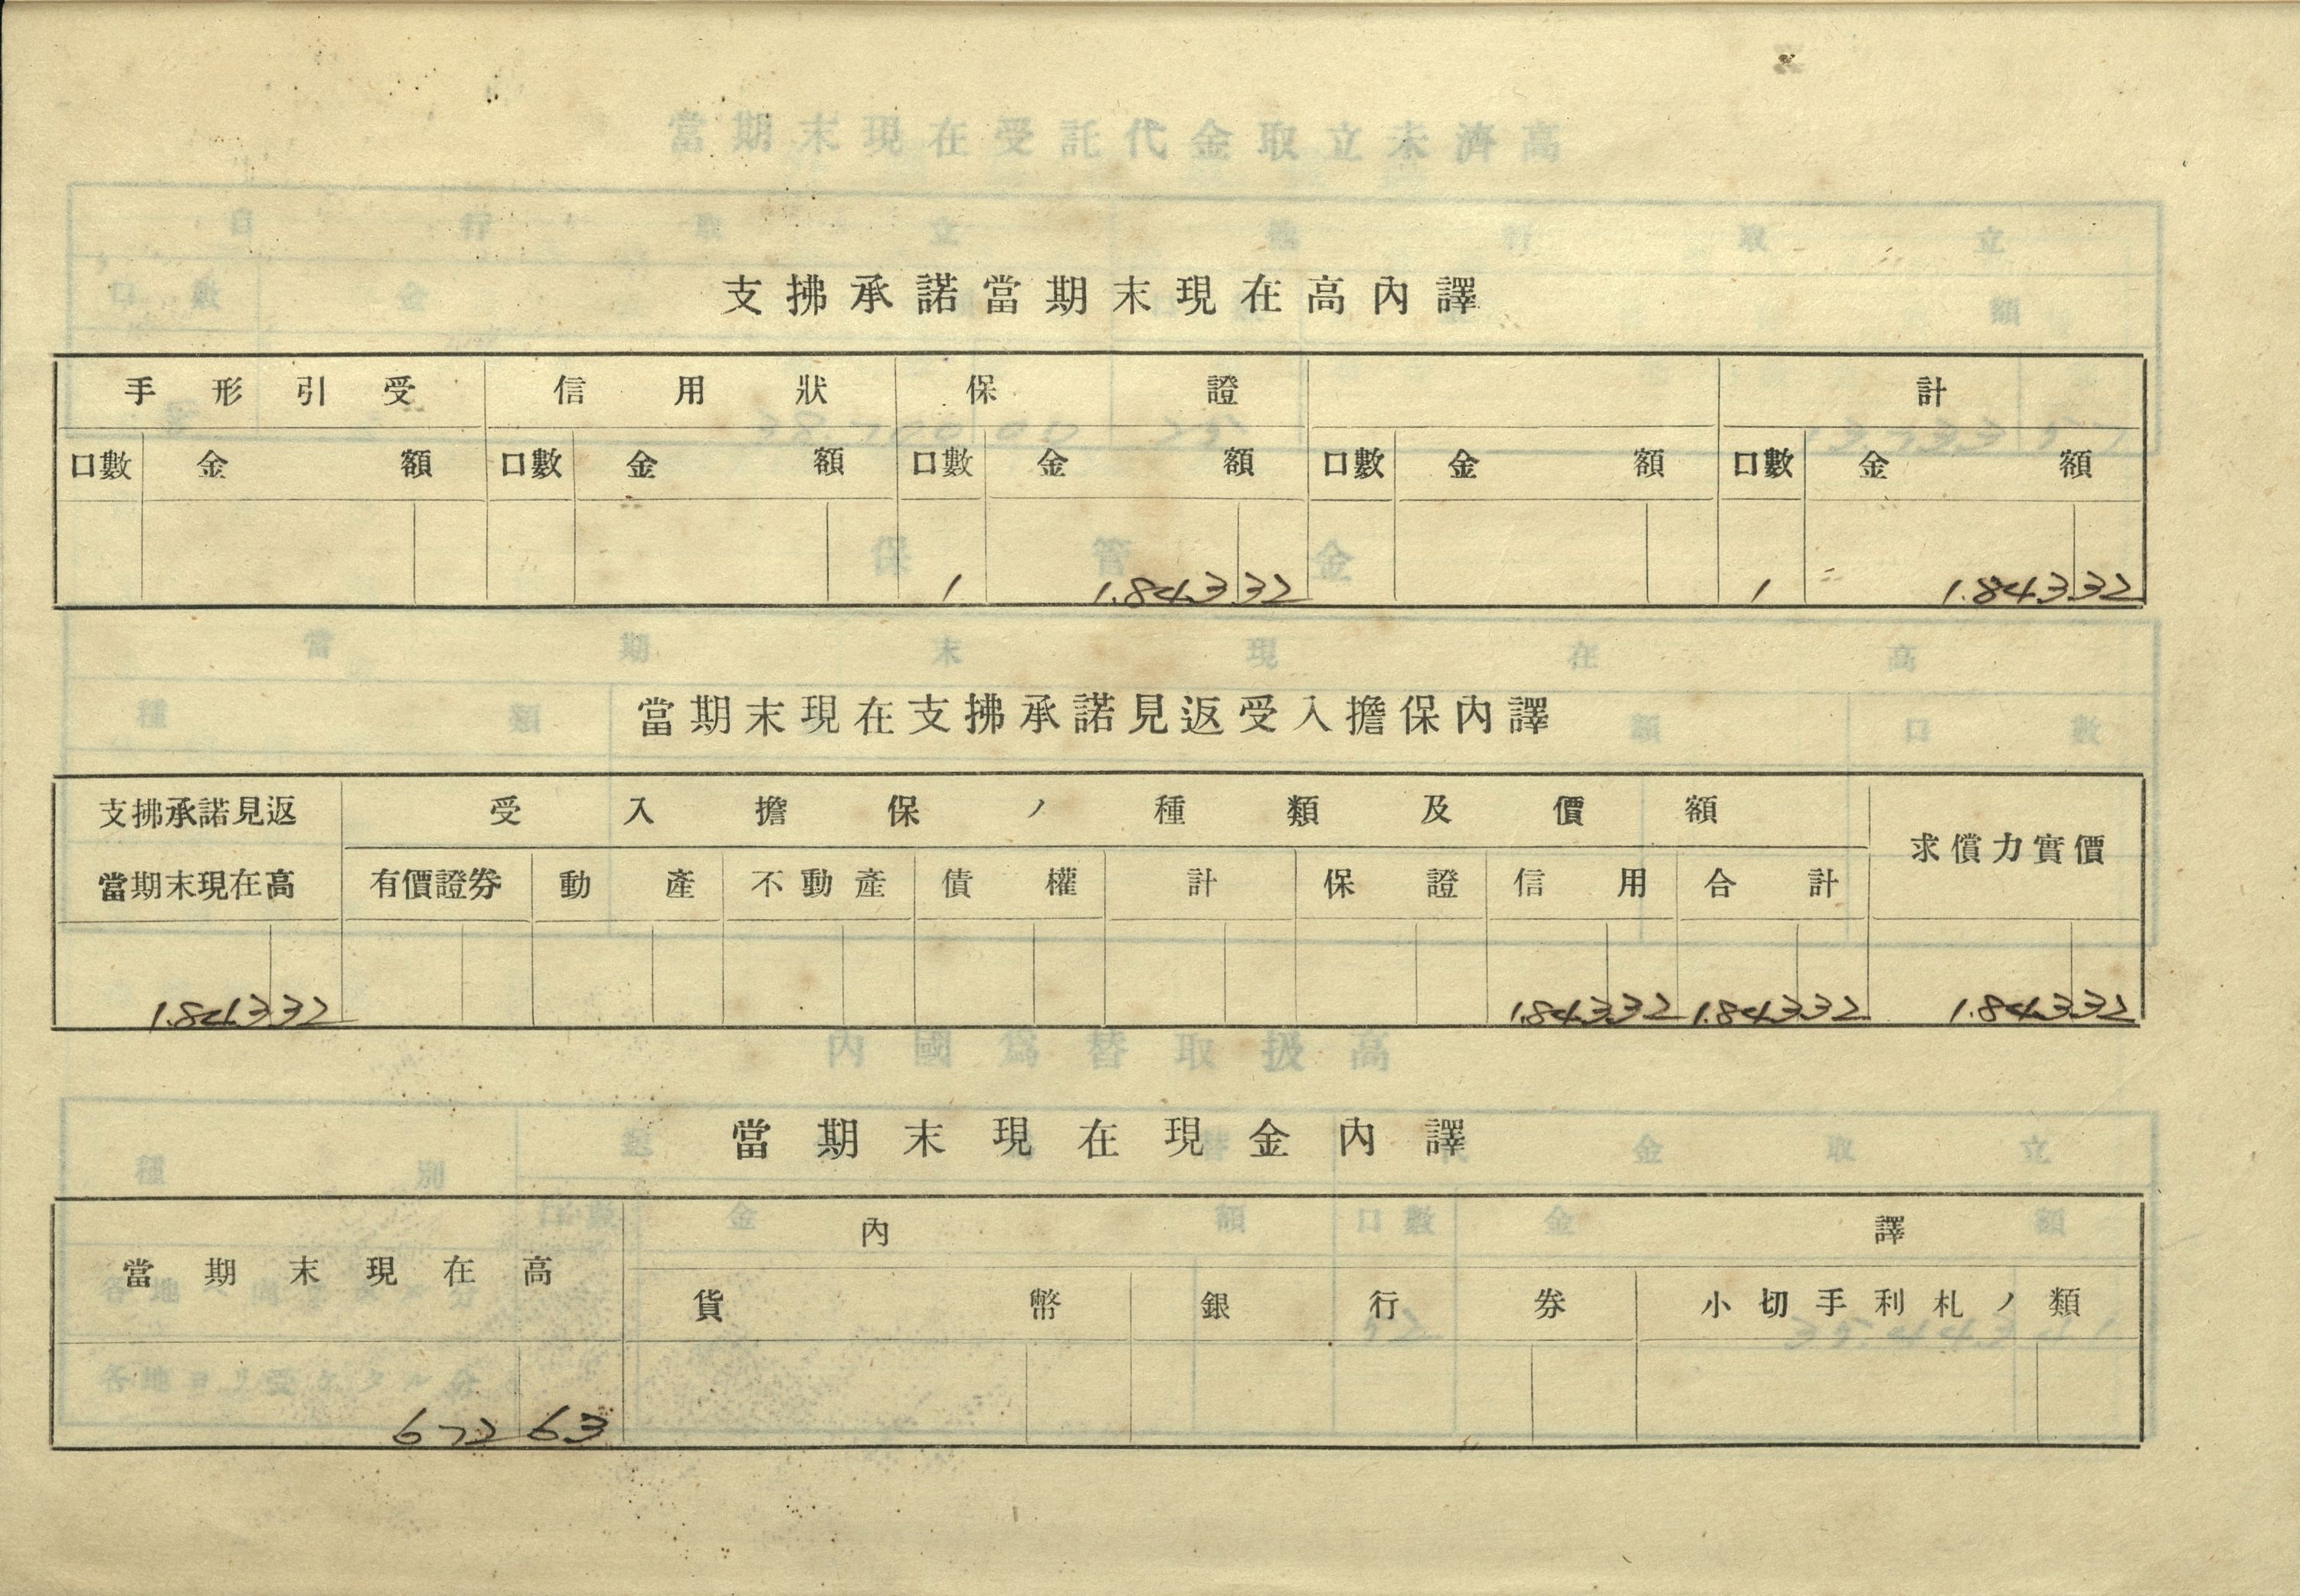 支拂承諾當期末現在高內譯
手形引受 信用狀 保證 計
口數 金額 口數 金額 口數 金額 口數 金額 口數 金額
1 1.843 32 1 1.843 32
當期末現在支拂承諾見返受入擔保內譯
支拂承諾見返 受入擔保ノ種類及價額 求償力實價
當期末現在高 有價證券 動產 不動產 債權 計 保證 信用 合計
1.843 32 1.843 32 1.843 32 1.843 32
當期末現在現金內譯
當期末現在高 內譯
貨幣 銀行券 小切手利札ノ類
672 63